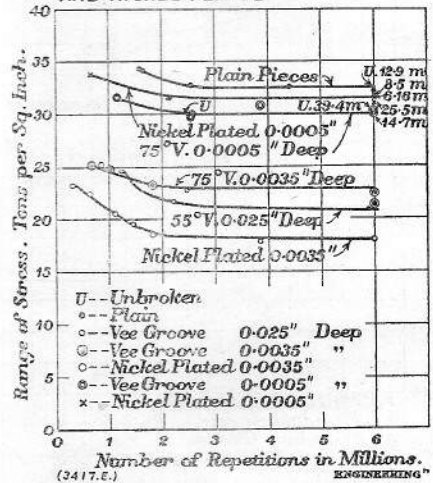 40
35
30
25
20
15
10
5
0
Range of Stress. Tons per Sq. Inch.
Plain Pieces
U.12·9 m
8·5 m
6·16 m
U
U.39·4m
25·5m
14·7m
Nickel Plated 0·0005"
75°V. 0·0005" Deep
75°V. 0·0035" Deep
55°V. 0·025" Deep
Nickel Plated 0·0035"
U--Unbroken
--Plain
--Vee Groove 0·025" Deep
--Vee Groove 0·0035" "
--Nickel Plated 0·0035"
--Vee Groove 0·0005" "
×--Nickel Plated 0·0005"
0 1 2 3 4 5 6
Number of Repetitions in Millions.
(3417.E.)
ENGINEERING"